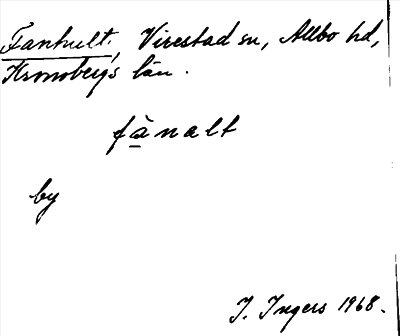 Fanhult, Virestad sn, Allbo hd,
Kronobergs län.
fànalt
by
I. Ingers 1968.